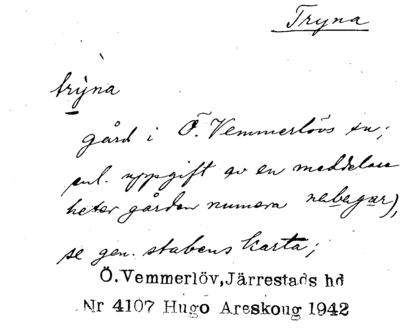 Tryna
trýna
gård i Ö. Vemmerlövs sn;
enl. uppgift av en meddelare
heter gården numera nabagar),
se gen. stabens karta;
Ö.Vemmerlöv,Järrestads hd
Nr 4107 Hugo Areskoug 1942